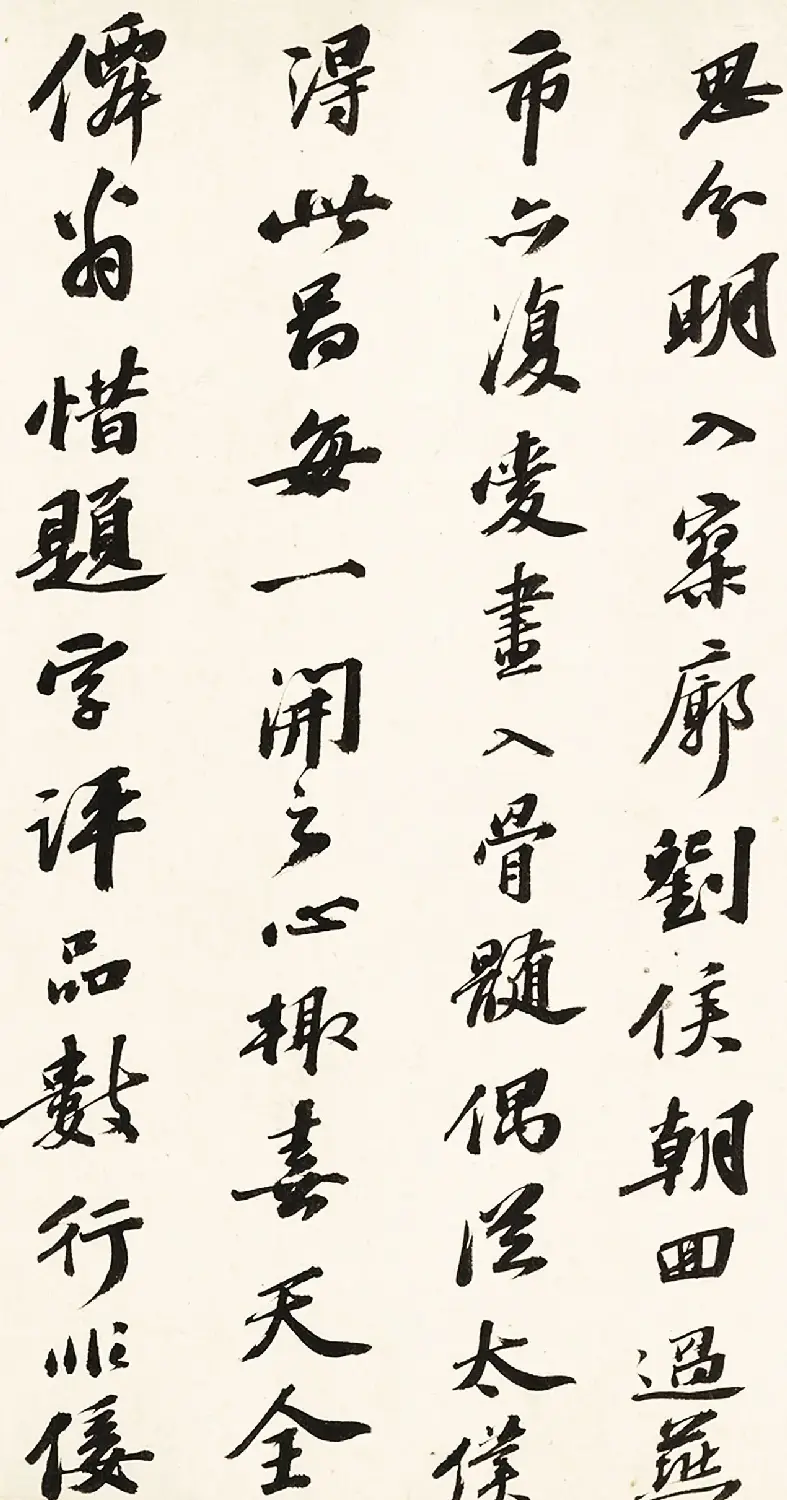 思分明入寥廓劉侯朝回過燕
市亦復愛畫入骨髓偶從太僕
得此圖每一開之心輒喜天全
僊翁惜題字評品數行非倭